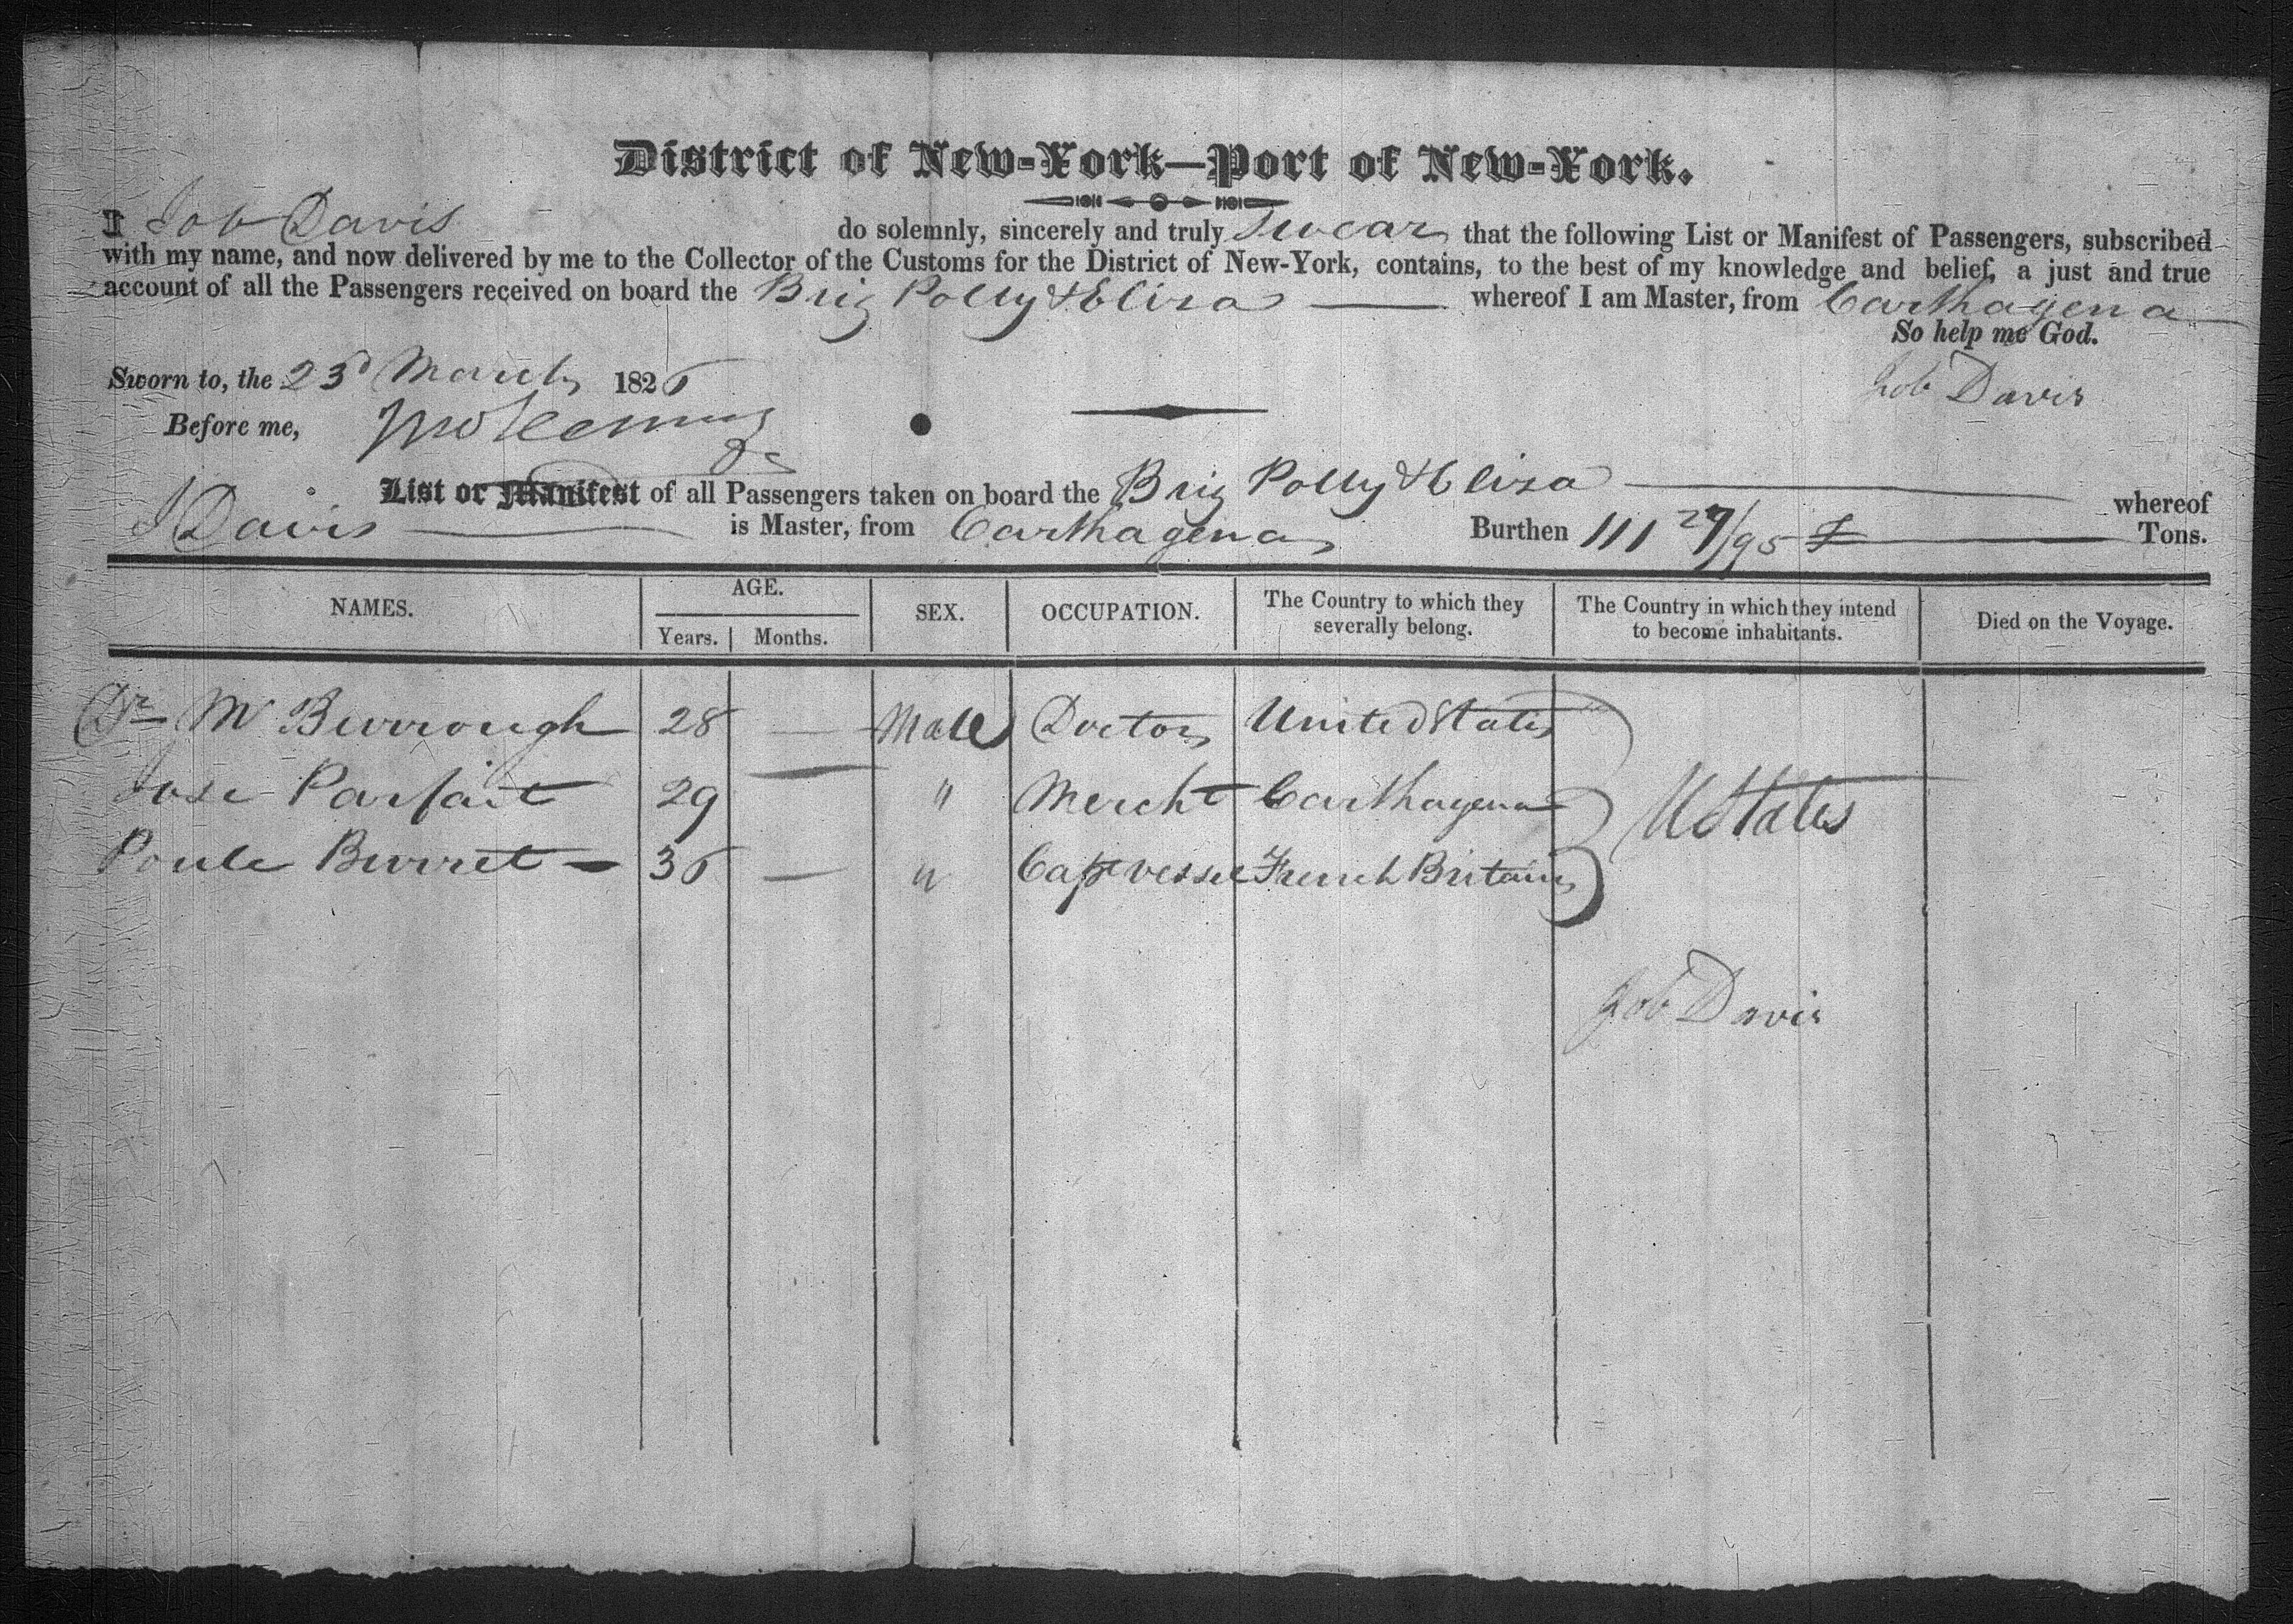 District of New-York—Port of New-York.
I Job Davis do solemnly, sincerely and truly Swear that the following List or Manifest of Passengers, subscribed
with my name, and now delivered by me to the Collector of the Customs for the District of New-York, contains, to the best of my knowledge and belief, a just and true
account of all the Passengers received on board the Brig Polly & Eliza whereof I am Master, from Carthagena
So help me God.
Sworn to, the 23d March 1826 Job Davis
Before me,
List or Manifest of all Passengers taken on board the Brig Polly & Eliza whereof
J Davis is Master, from Carthagena Burthen 111 27/95 Tons.
NAMES. AGE. SEX. OCCUPATION. The Country to which they severally belong. The Country in which they intend to become inhabitants. Died on the Voyage.
Years. Months.
Dr M Burrough 28 — Male Doctor United States
Jose Parfait 29 — " Mercht Carthagena U States
Poule Burret 36 — " Capt vessel French Britain
Job Davis